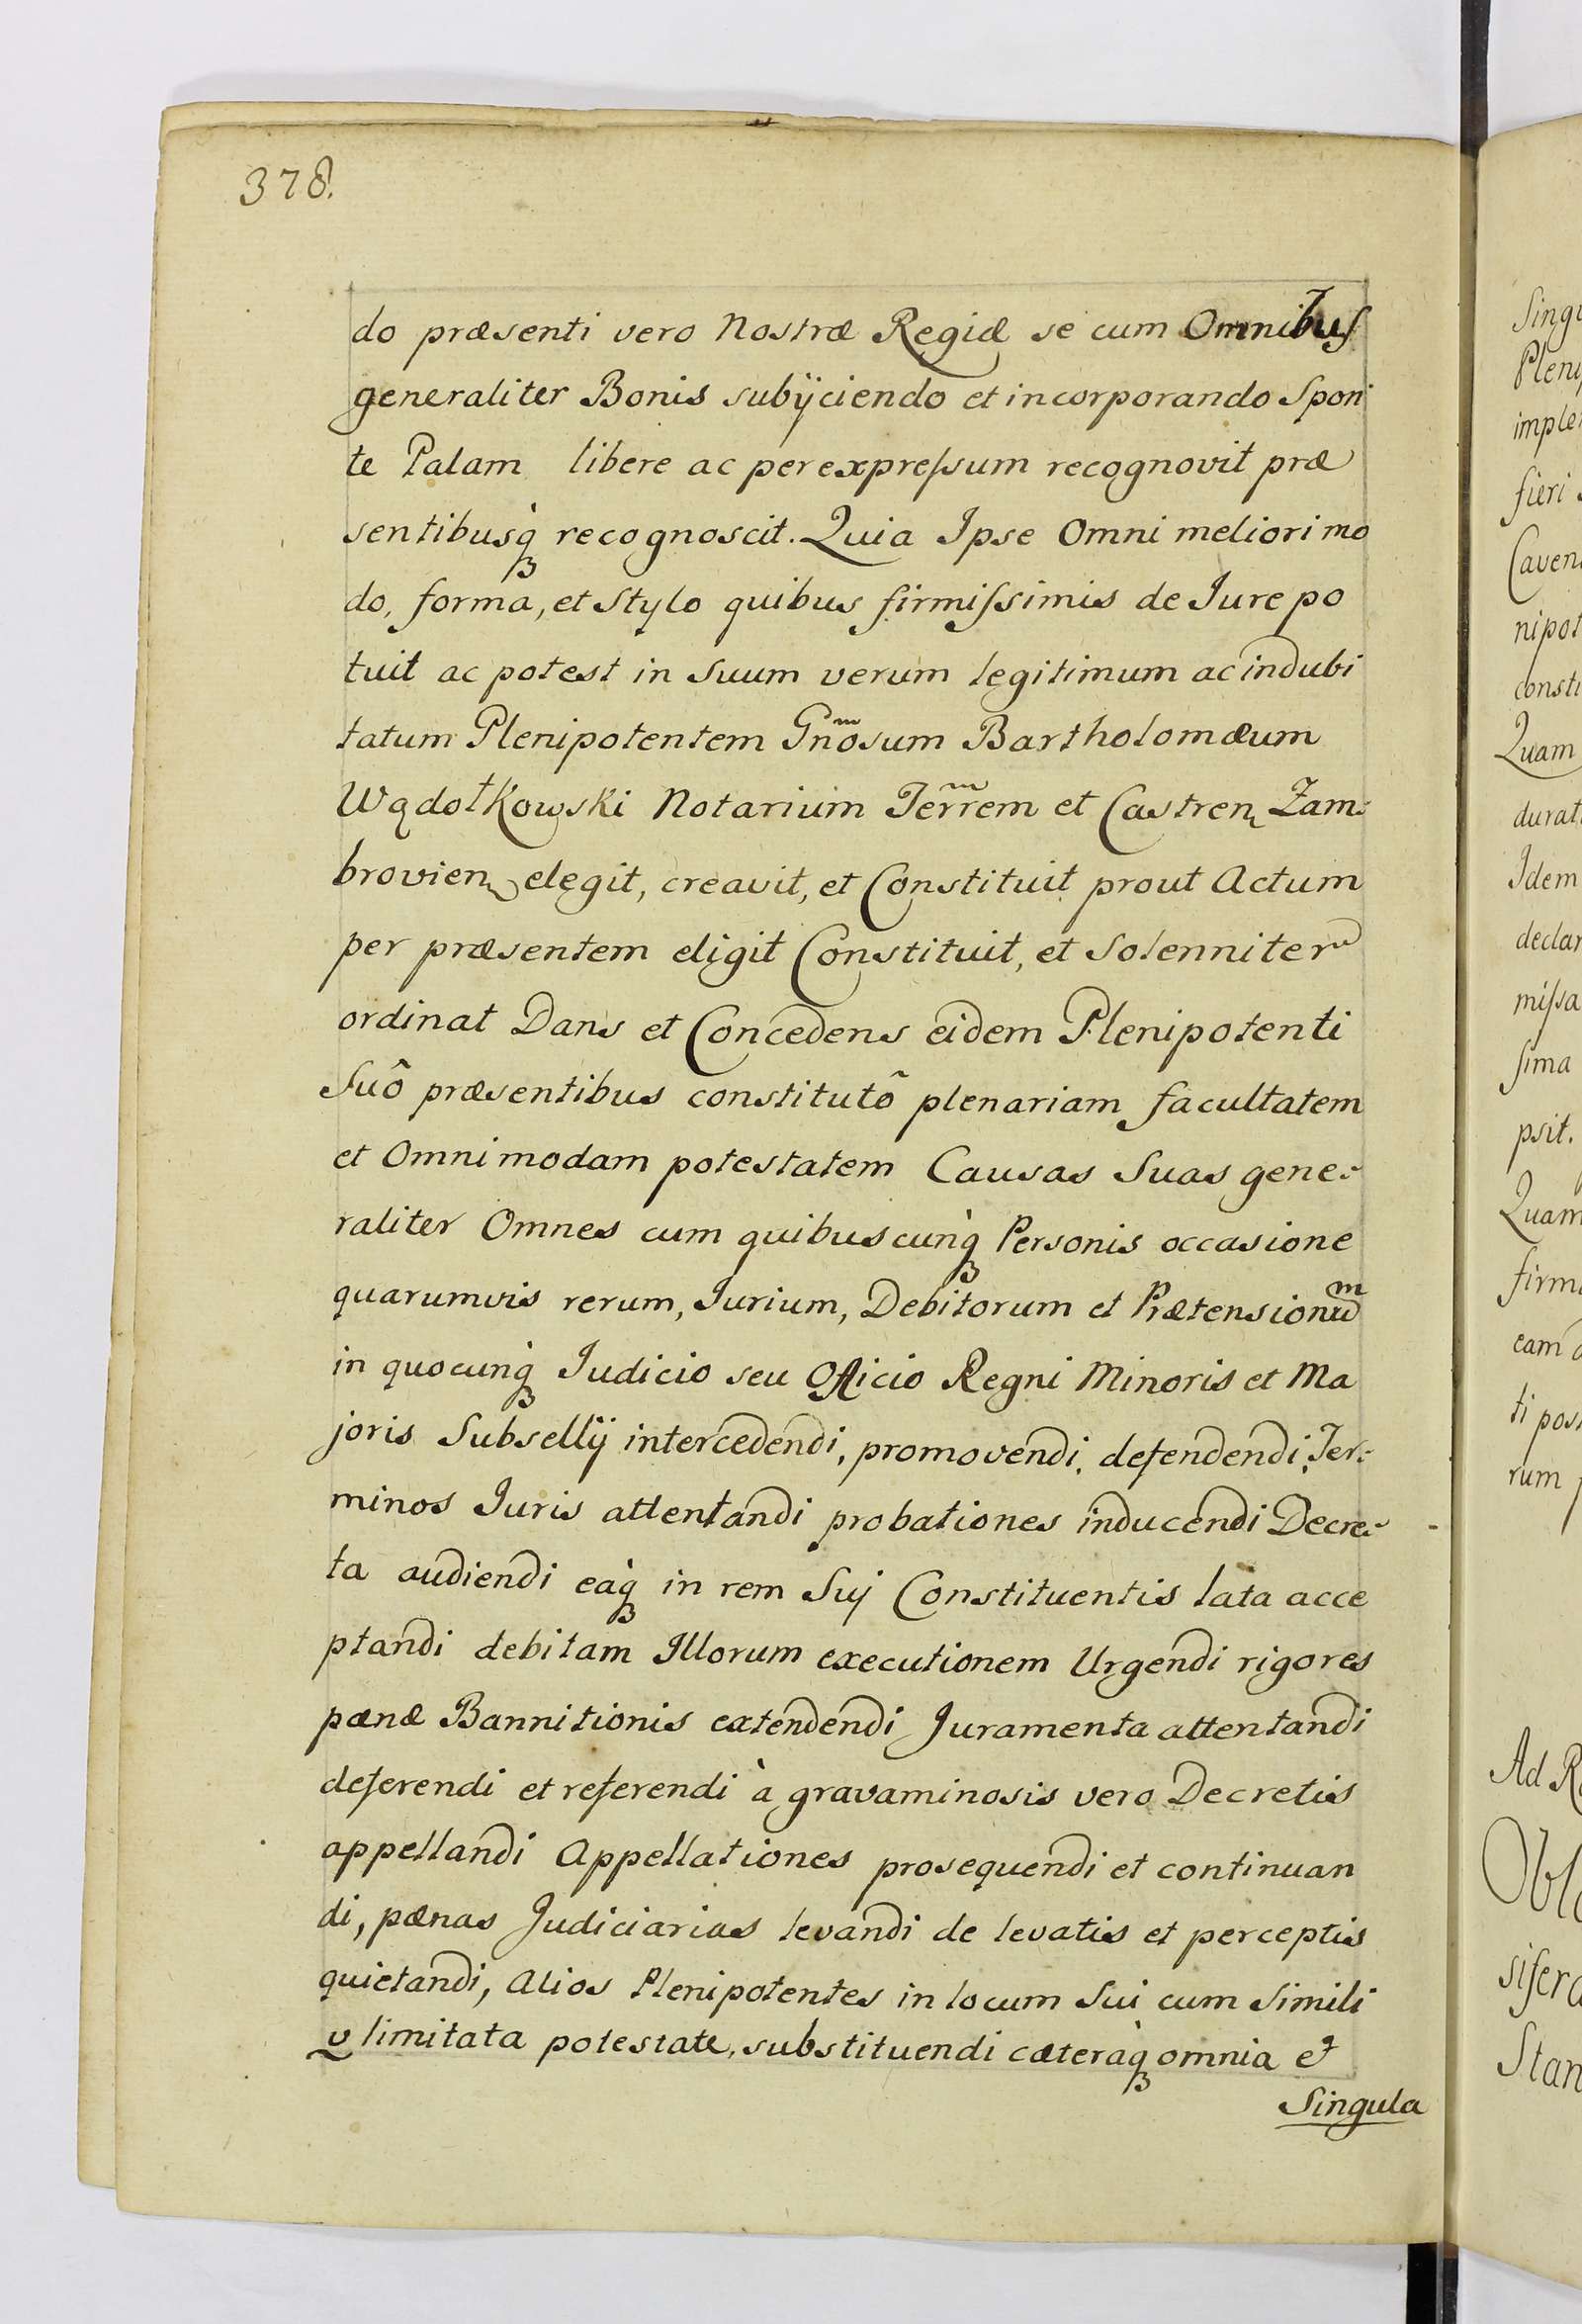 378.
do præsenti vero Nostræ Regiæ se cum Omnibus
generaliter Bonis subijciendo et incorporando Spon
te Palam libere ac per expreſsum recognovit præ
sentibusq̀ꝫ recognoscit. Quia Ipse Omni meliori mo
do, forma, et Stylo quibus firmiſsimis de Iure po
tuit ac potest in Suum verum legitimum ac indubi
tatum Plenipotentem Gn̄osum Bartholomæum
Wądołkowski Notarium Terr̄em et Castren Zam:
brovien elegit, creavit, et Constituit prout Actum
per præsentem eligit Constituit, et Solenniter
ordinat Dans et Concedens eidem Plenipotenti
Suô præsentibus constitutô plenariam facultatem
et Omnimodam potestatem Causas Suas gene:
raliter Omnes cum quibuscunq̀ꝫ Personis occasione
quarumvis rerum, Iurium, Debitorum et Prætensionum
in quocunq̀ꝫ Iudicio seu Officio Regni Minoris et Ma
joris Subsellij intercedendi, promovendi, defendendi, Ter:
minos Iuris attentandi probationes inducendi Decre:
ta audiendi eaq̀ꝫ in rem Suj Constituentis lata acce
ptandi debitam Illorum executionem Urgendi rigores
pænæ Bannitionis extendendi Juramenta attentandi
deferendi et referendi à gravaminosis vero Decretis
appellandi Appellationes prosequendi et continuan
di, pænas Judiciarias levandi de levatis et perceptis
quietandi, Alios Plenipotentes in locum Sui cum Simili
v limitata potestate, substituendi cæteraq̀ꝫ omnia et
Singula
Singu
Pleni
imple
fieri
Caven
nipot
consti
Quam
durat
Idem
declar
miſsa
sima
psit.
Quam
firm
eam
ti pos
rum
Ad R
Obl
sifer
Stan